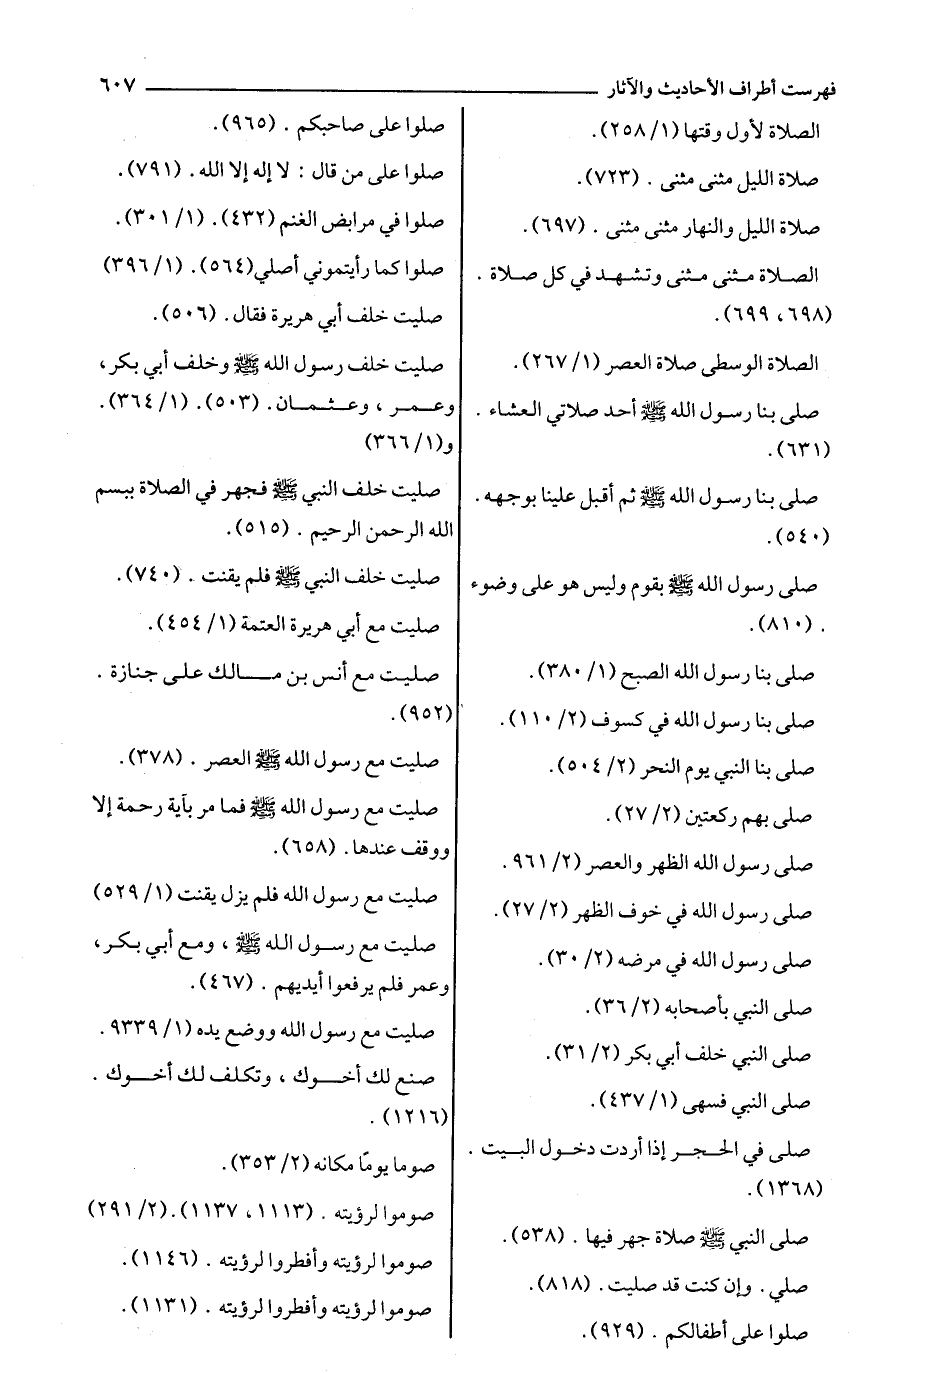 فهرست أطراف الأحاديث والآثار ٦٠٧
الصلاة لأول وقتها (١/ ٢٥٨).
صلاة الليل مثنى مثنى . (٧٢٣).
صلاة الليل والنهار مثنى مثنى . (٦٩٧).
الصلاة مثنى مثنى وتشهد في كل صلاة .
(٦٩٨، ٦٩٩).
الصلاة الوسطى صلاة العصر (١/ ٢٦٧).
صلى بنا رسول الله ﷺ أحد صلاتي العشاء .
(٦٣١).
صلى بنا رسول الله ﷺ ثم أقبل علينا بوجهه .
(٥٤٠).
صلى رسول الله ﷺ بقوم وليس هو على وضوء
. (٨١٠).
صلى بنا رسول الله الصبح (١/ ٣٨٠).
صلى بنا رسول الله في كسوف (٢/ ١١٠).
صلى بنا النبي يوم النحر (٢/ ٥٠٤).
صلى بهم ركعتين (٢/ ٢٧).
صلى رسول الله الظهر والعصر (٢/ ٩٦١ .
صلى رسول الله في خوف الظهر (٢/ ٢٧).
صلى رسول الله في مرضه (٢/ ٣٠).
صلى النبي بأصحابه (٢/ ٣٦).
صلى النبي خلف أبي بكر (٢/ ٣١).
صلى النبي فسهى (١/ ٤٣٧).
صلى في الحجر إذا أردت دخول البيت .
(١٣٦٨).
صلى النبي ﷺ صلاة جهر فيها . (٥٣٨).
صلي . وإن كنت قد صليت . (٨١٨).
صلوا على أطفالكم . (٩٢٩).
صلوا على صاحبكم . (٩٦٥).
صلوا على من قال : لا إله إلا الله . (٧٩١).
صلوا في مرابض الغنم (٤٣٢). (١/ ٣٠١).
صلوا كما رأيتموني أصلي(٥٦٤). (١/ ٣٩٦)
صليت خلف أبي هريرة فقال . (٥٠٦).
صليت خلف رسول الله ﷺ وخلف أبي بكر ،
وعمر ، وعثمان . (٥٠٣). (١/ ٣٦٤).
و(١/ ٣٦٦)
صليت خلف النبي ﷺ فجهر في الصلاة ببسم
الله الرحمن الرحيم . (٥١٥).
صليت خلف النبي ﷺ فلم يقنت . (٧٤٠).
صليت مع أبي هريرة العتمة (١/ ٤٥٤).
صليت مع أنس بن مالك على جنازة .
(٩٥٢).
صليت مع رسول الله ﷺ العصر . (٣٧٨).
صليت مع رسول الله ﷺ فما مر بآية رحمة إلا
ووقف عندها . (٦٥٨).
صليت مع رسول الله فلم يزل يقنت (١/ ٥٢٩)
صليت مع رسول الله ﷺ ، ومع أبي بكر ،
وعمر فلم يرفعوا أيديهم . (٤٦٧).
صليت مع رسول الله ووضع يده (١/ ٩٣٣٩ .
صنع لك أخوك ، وتكلف لك أخوك .
(١٢١٦) .
صوما يومًا مكانه (٢/ ٣٥٣).
صوموا لرؤيته . (١١١٣، ١١٣٧).(٢/ ٢٩١)
صوموا لرؤيته وأفطروا لرؤيته . (١١٤٦).
صوموا لرؤيته وأفطروا لرؤيته . (١١٣١).